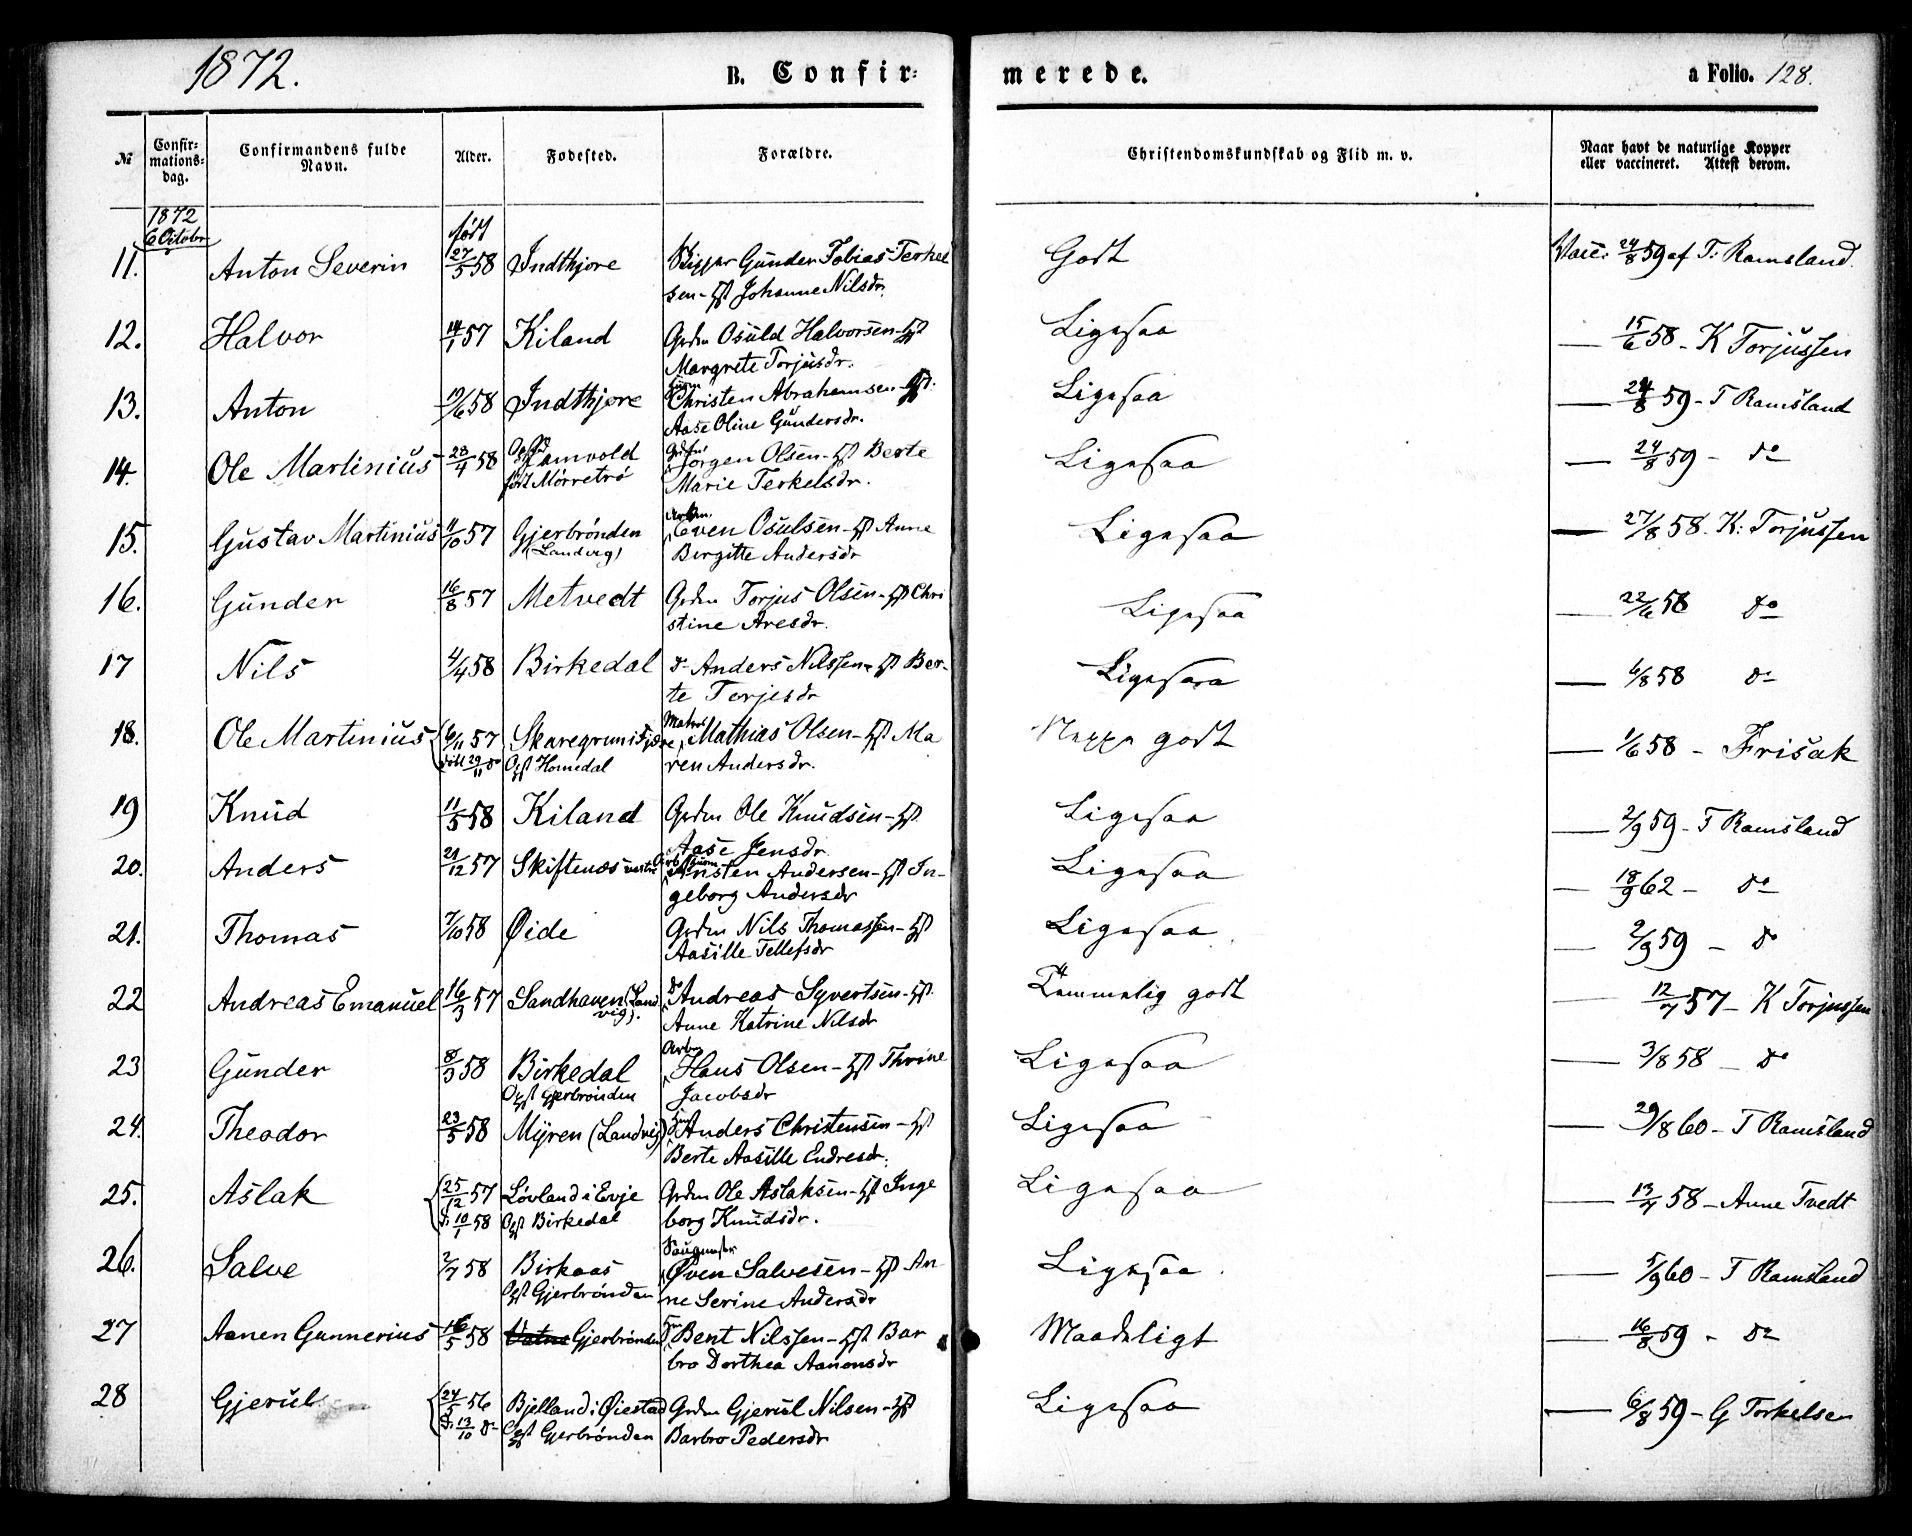 1872.
B. Confir-
merede.
a Folio. 128.
№
Confir-
mations-
dag.
Confirmandens fulde
Navn.
Alder.
Fødested.
Forældre.
Christendomskundskab og Flid m. v.
Naar havt de naturlige Kopper
eller vaccineret. Attest derom.
1872
6 October
født
11. Anton Severin 27/5 58 Indthjore Skipper Gunder Tobias Terkel Godt Vacc: 24/8 59 af T: Ramsland.
sen - Hst Johanne Nilsdr.
12. Halvor 14/1 57 Kiland Grdm Osuld Halvorsen - Hst Ligesaa — 15/6 58 - K Torjussen
Margrete Torjusdr.
13. Anton 19/6 58 Indthjore Christen Abrahamsen - Hst. Ligesaa — 24/8 59 - T Ramsland
Aase Oline Gundersdr.
14. Ole Martinius 23/4 58 Jørgen Olsen - Hst Berte Ligesaa — 24/8 59 - do
født Mørretrø Marie Terkelsdr.
15. Gustav Martinius 11/10 57 Gjerbrønden Even Osulsen - Hst Anne Ligesaa — 27/8 58. K: Torjussen
(Landvig) Birgitte Andersdr
16. Gunder 16/8 57 Metvedt Grdm Torjus Olsen - Hst Chri Ligesaa — 22/6 58 do
stine Aresdr.
17 Nils 4/4 58 Birkedal do Anders Nilssen - Hst Ber- Ligesaa — 6/8 58 do
te Torjesdr
18. Ole Martinius 6/11 57 Mathias Olsen - Hst Ma Neppe godt — 1/6 58 - Frisak
døbt 29/11 do Opf Homedal ren Andersdr.
19 Knud 11/5 58 Kiland Grdm Ole Knudsen - Hst Ligesaa — 2/9 59 - T Ramsland
Aase Jensdr
20. Anders 21/12 57 Skiftenæs vestre Andersen - Hst In- Ligesaa — 18/9 62 - do
geborg Andersdr
21. Thomas 7/10 58 Øide Grdm Nils Thomassen - Hst Ligesaa — 2/9 59 - do
Aasille Tellefsdr
22 Andreas Emanuel 16/3 57 Sandhaven (Land do Andreas Syvertsen - Hst. Temmelig godt — 12/7 57 - K Torjussen
vig). Anne Katrine Nilsdr
23 Gunder 8/3 58 Birkedal Arbm Hans Olsen - Hst Thrine Ligesaa — 3/8 58 - do
Opf Gjerbrønden Jacobsdr
24. Theodor 23/5 58 Myren (Landvig) Anders Christensen - Hst Ligesaa — 29/8 60 - T Ramsland
Berte Aasille Endresdr.
25. Aslak 25/12 57 Løvland i Evje Grdm Ole Aslaksen - Hst Inge Ligesaa — 13/7 58 - Anne Tvedt
D. 10/1 58 Opf Birkedal borg Knudsdr.
26. Salve 2/7 58 Birkaas Øven Salvesen - Hst An- Ligesaa. — 5/9 60 - T Ramsland
Opf Gjerbrønden ne Serine Andersdr
27 Aanen Gunnerius 16/5 58 Gjerbrønden Bent Nilssen - Hst Bar Maadeligt — 16/8 59 - do
bro Dorthea Aanonsdr
28 Gjerul 24/5 56 Bjelland i Øiestad Grdm Gjerul Nilsen - Hst Ligesaa — 6/8 59 - G Torkelsen
D. 13/10 do Opf Gjerbrønden Barbro Pedersdr